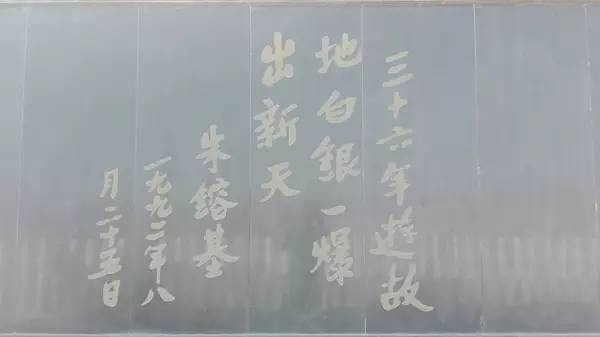 三十六年遊故
地白銀一爆
出新天
朱鎔基
一九九二年八
月二十五日